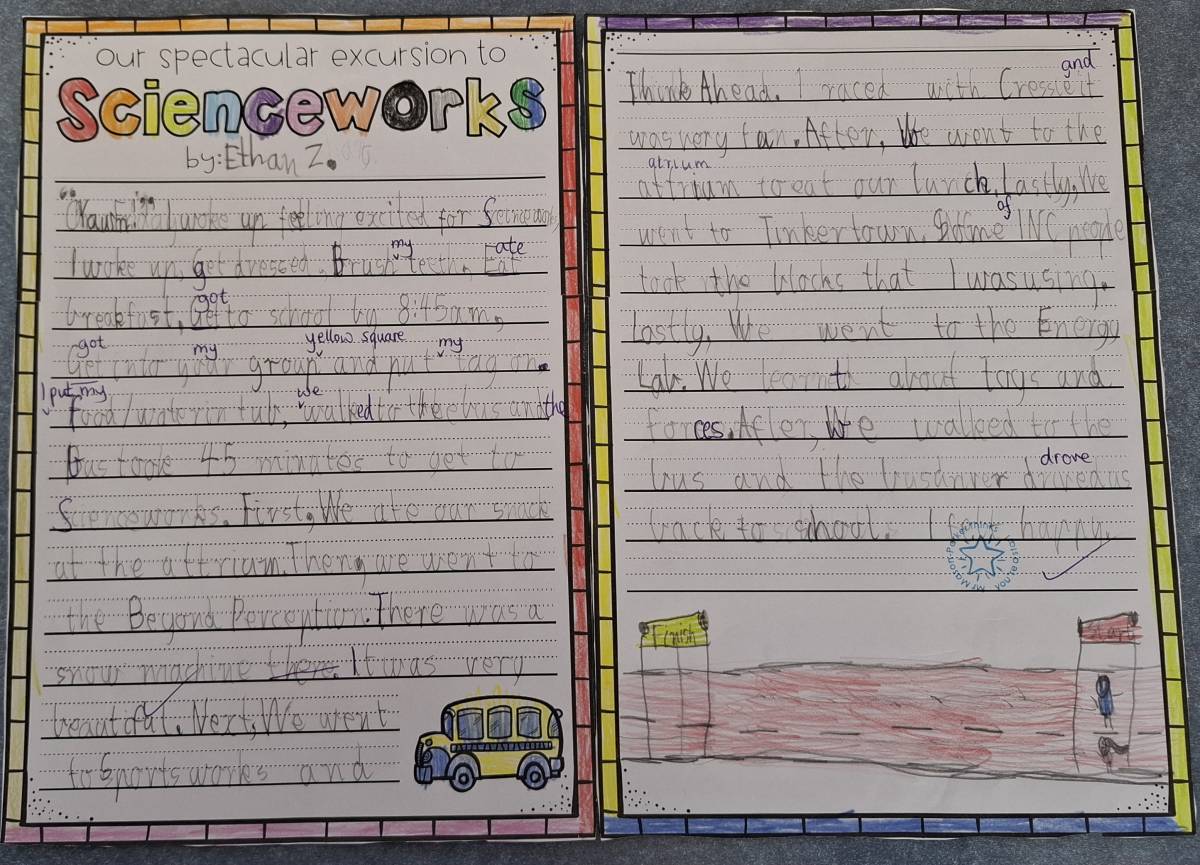 our spectacular excursion to
Scienceworks
by: Ethan Z.
"Yawn!" I woke up feeling excited for Scienceworks
my ate
I woke up, get dressed, Brush teeth, Eat
got
breakfast, Get to school by 8:45am,
got my yellow square my
Get into your group and put tag on.
I put my we
food/water in tub, walked to the bus and the
Bus took 45 minutes to get to
Scienceworks. First, We ate our snack
at the attrium. Then, we went to
the Beyond Perception. There was a
snow machine there. It was very
beautful. Next, We went
to Sportsworks and
and
Think Ahead. I raced with Cressie it
was very fun. After, We went to the
atrium
attrium to eat our lunch. Lastly, We
of
went to Tinkertown. Some 1NC people
took the blocks that I was using.
Lastly, We went to the Energy
Lab. We learnt about toys and
forces. After, We walked to the
drove
bus and the busdriver drived us
back to school. I felt happy.
Finish
Start